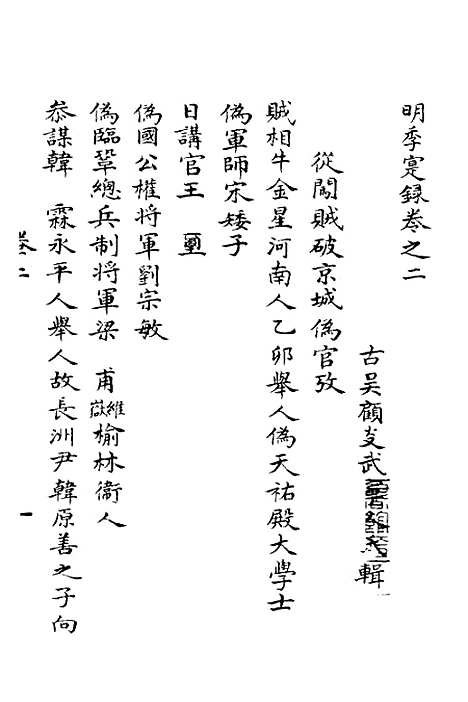 明季寔錄卷之二
古吴顧炎武輯
從闖賊破京城偽官攷
賊相牛金星河南人乙卯舉人偽天祐殿大學士
偽軍師宋矮子
日講官王
偽國公權将軍劉宗敏
偽臨鞏總兵制将軍梁甫維嶽榆林衞人
叅謀韓霖永平人舉人故長洲尹韓原善之子向
卷二
一